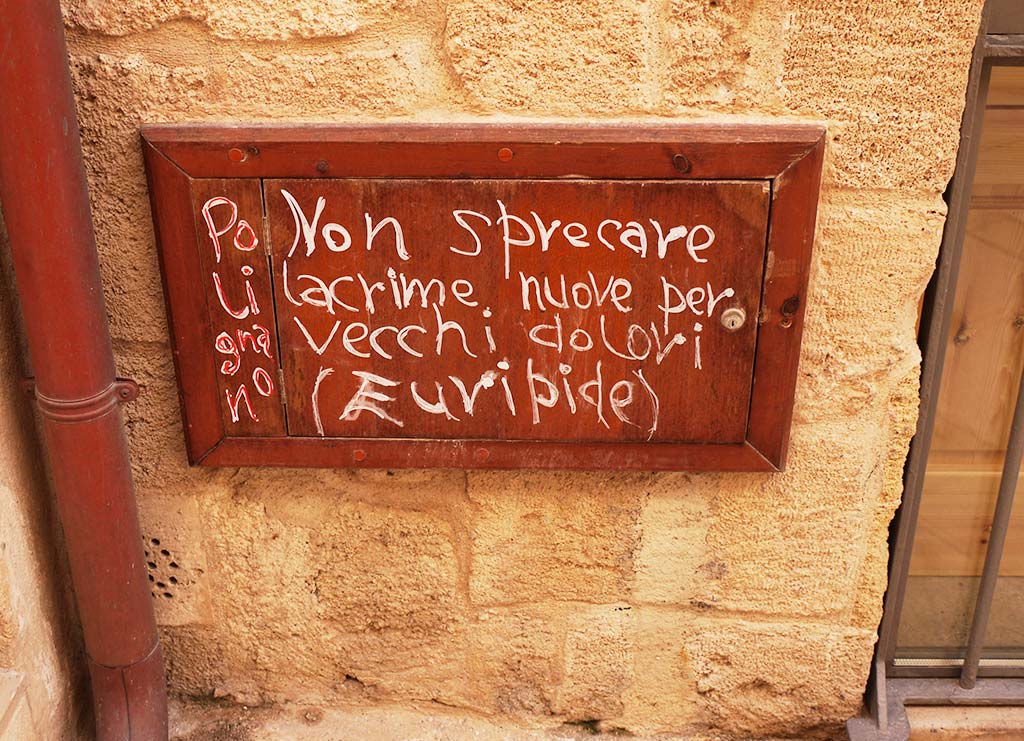 Polignano
Non sprecare
lacrime nuove per
vecchi dolori
(Euripide)